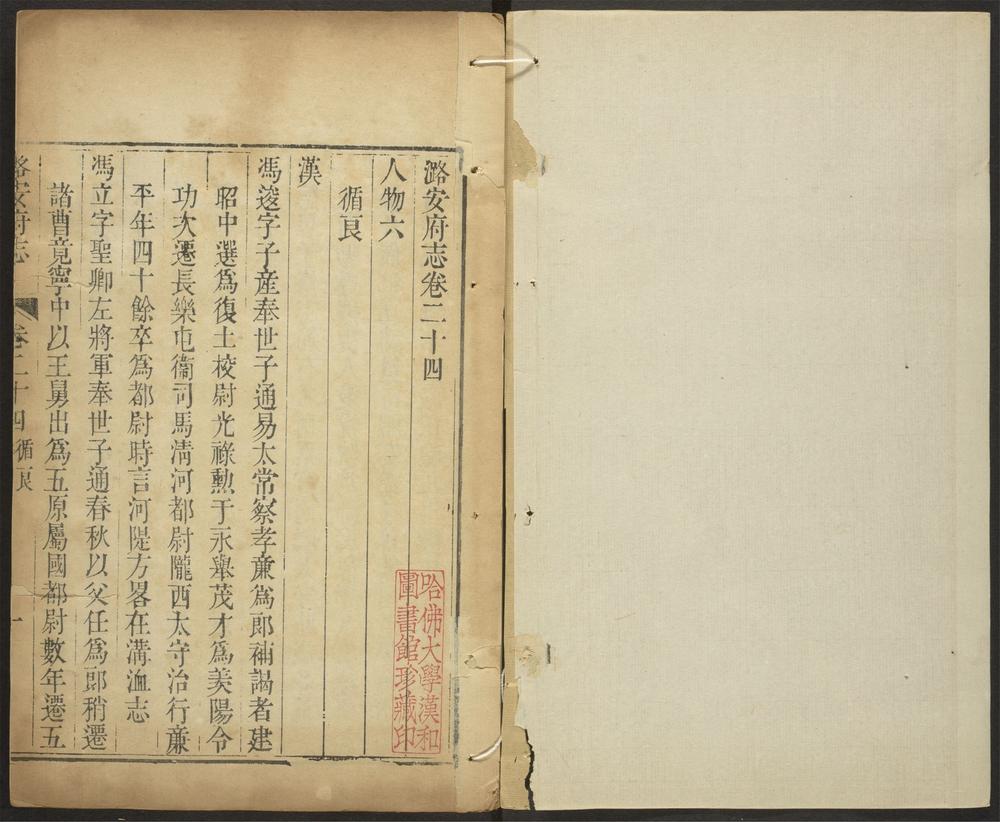 潞安府志卷二十四
人物六
循良
漢
馮逡字子産奉世子通易太常察孝亷爲郎補謁者建
昭中選爲復土校尉光祿勲于永舉茂才爲美陽令
功次遷長樂屯衞司馬淸河都尉隴西太守治行亷
平年四十餘卒爲都尉時言河隄方畧在溝洫志
馮立字聖卿左將軍奉世子通春秋以父任爲郎稍遷
諸曹竟寧中以王舅出爲五原屬國都尉數年遷五
潞安府志 卷二十四 循良 一
哈佛大學漢和
圖書館珍藏印